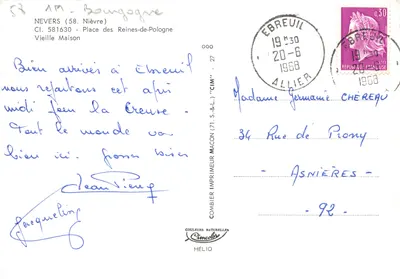 58 1M - Bourgogne
NEVERS (58. Nièvre)
Cl. 581630 - Place des Reines-de-Pologne
Vieille Maison
Bien arrivés à Ebreuil
nous repartons cet après
midi pour la Creuse.
Tout le monde va
bien ici. Grosses bises
Jean Pierre
Jacqueline
000
27
COMBIER IMPRIMEUR MACON (71. S.-&-L.) "CIM"
COULEURS NATURELLES
Combier
HELIO
EBREUIL
19H30
20-6
1968
ALLIER
EBREUIL
19H30
20-6
1968
ALLIER
0,30
Madame Germaine CHEREAU
34 Rue de Prony
ASNIÈRES
- 92 -